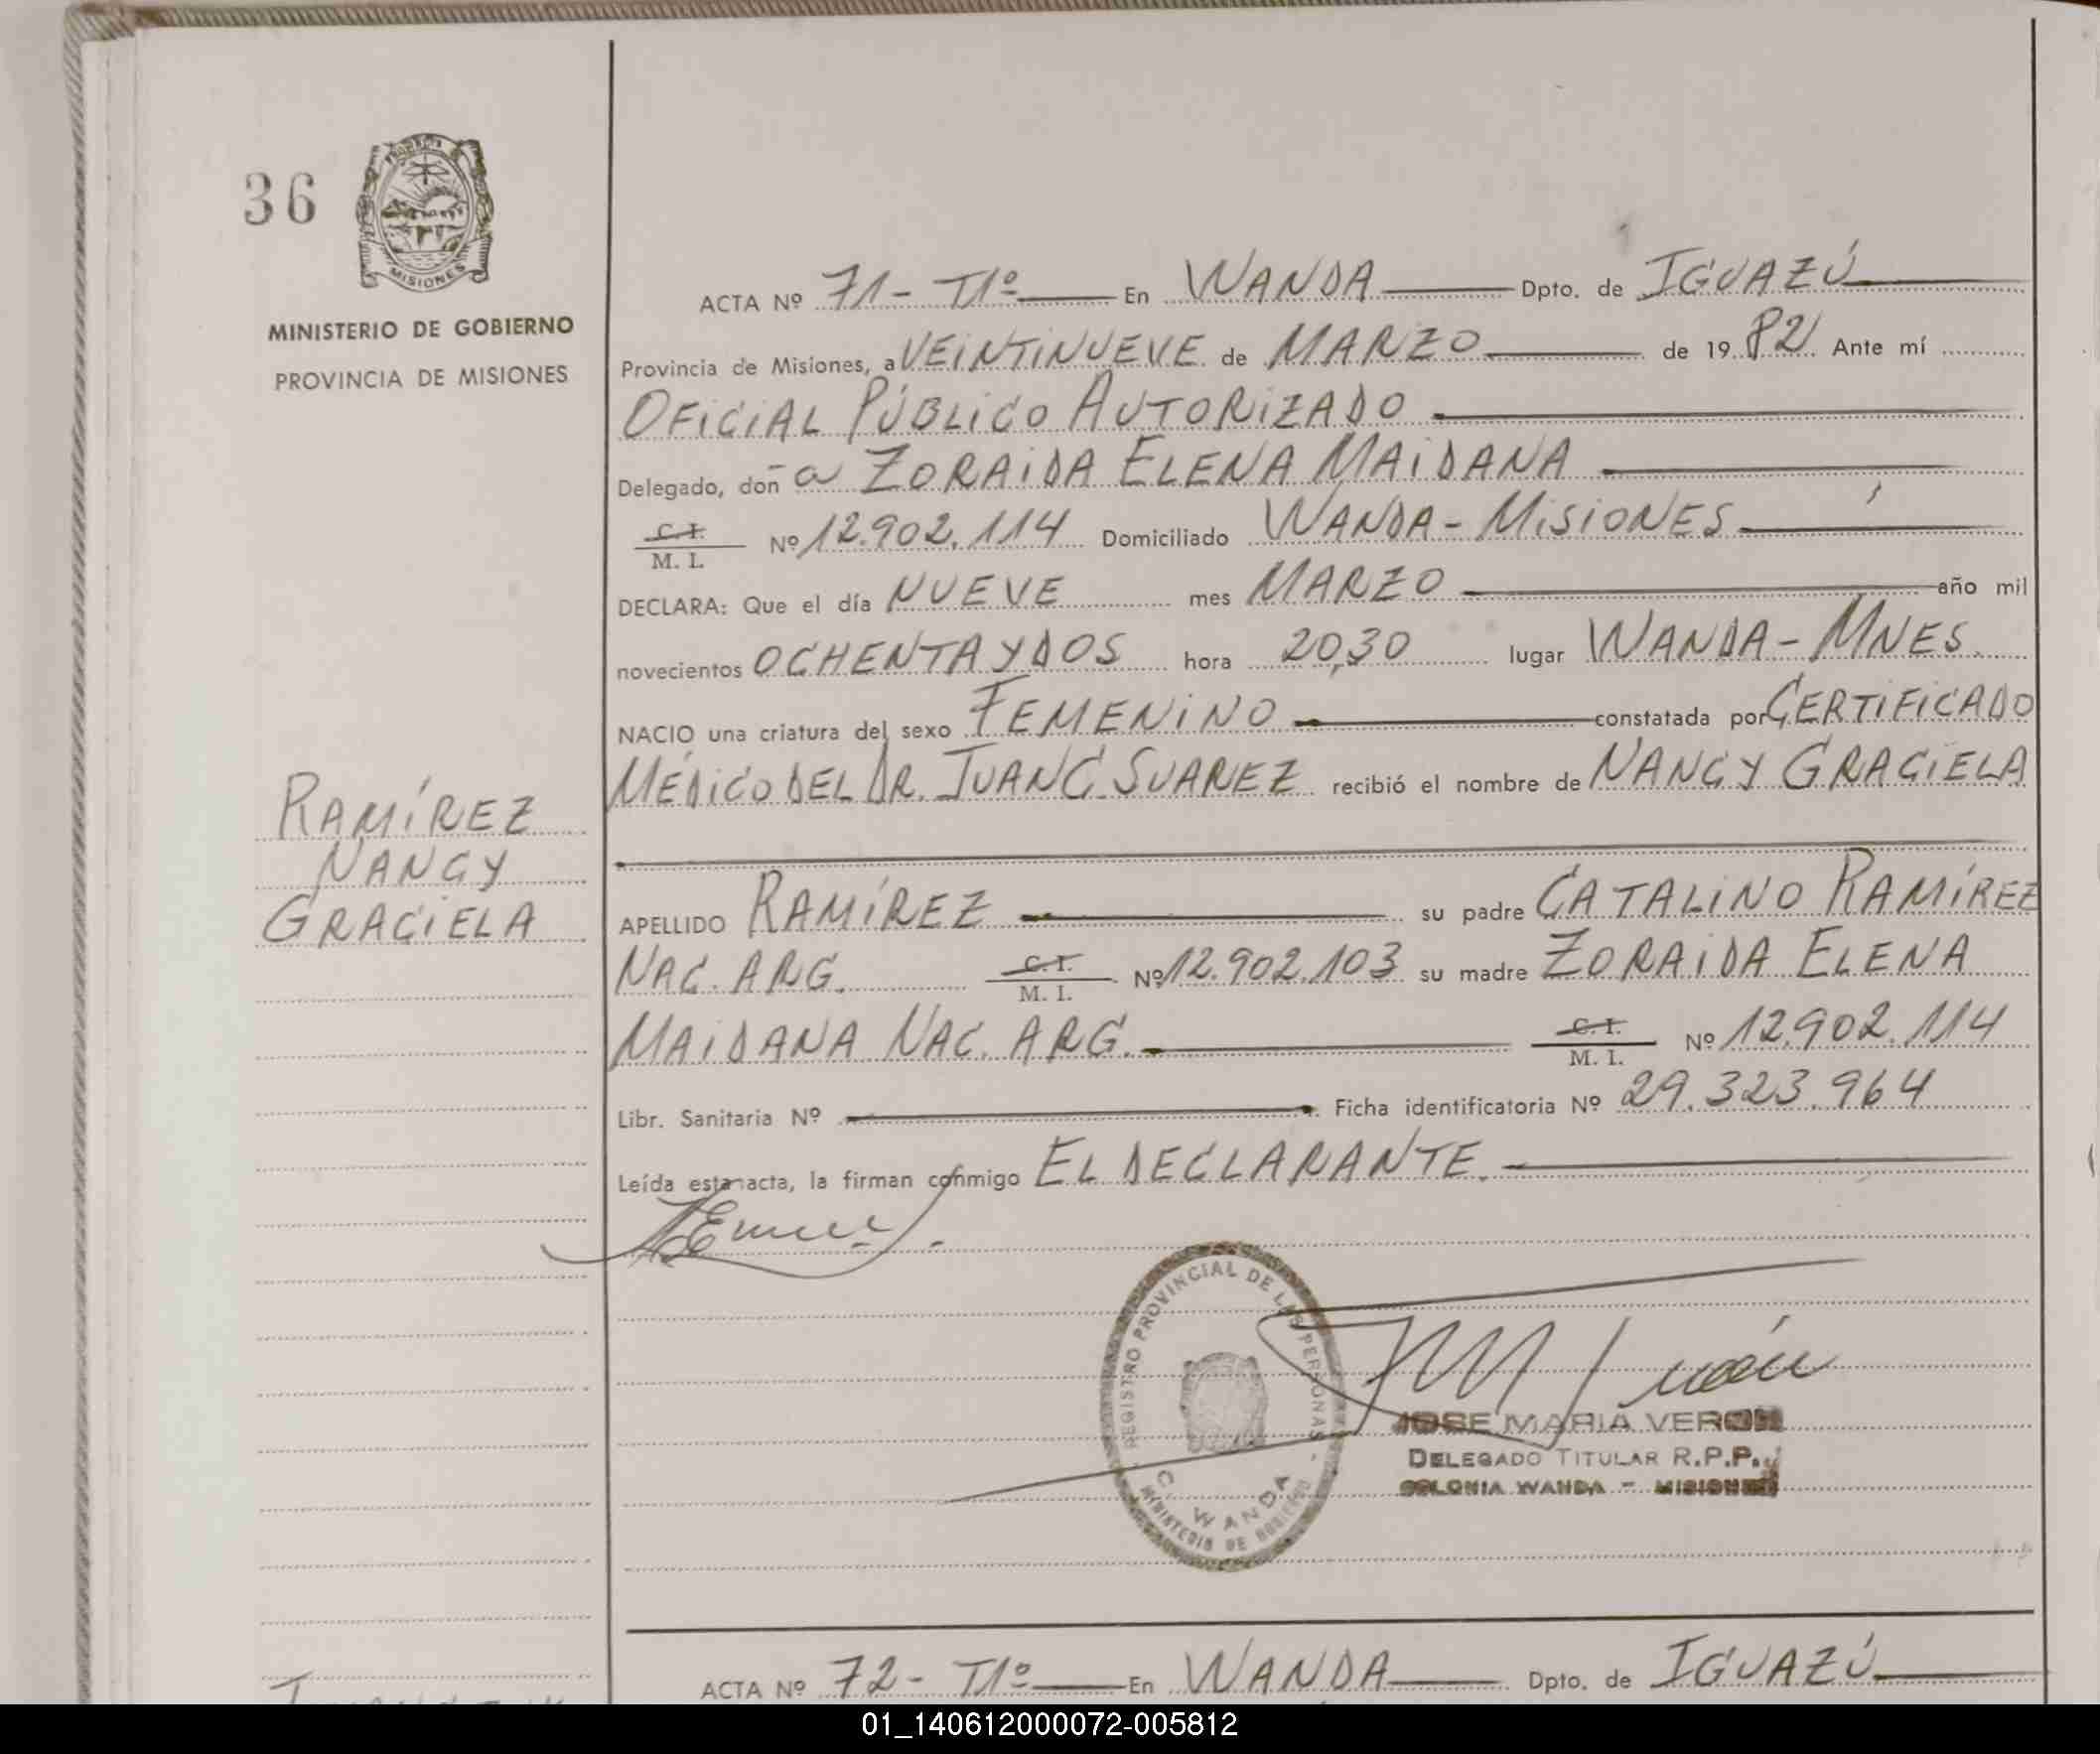 36
MISIONES
MINISTERIO DE GOBIERNO
PROVINCIA DE MISIONES
RAMÍREZ
NANCY
GRACIELA
ACTA Nº 71- T1º En WANDA Dpto. de IGUAZÚ
Provincia de Misiones, a VEINTINUEVE de MARZO de 1982 Ante mí
OFICIAL PÚBLICO AUTORIZADO
Delegado, don a ZORAIDA ELENA MAIDANA
C.I. M. I. Nº 12.902.114 Domiciliado WANDA - MISIONES
DECLARA: Que el día NUEVE mes MARZO año mil
novecientos OCHENTA Y DOS hora 20,30 lugar WANDA - MNES.
NACIO una criatura del sexo FEMENINO constatada por CERTIFICADO
MÉDICO DEL DR. JUAN C. SUAREZ recibió el nombre de NANCY GRACIELA
APELLIDO RAMÍREZ su padre CATALINO RAMÍREZ
NAC. ARG. C.I. M. I. Nº 12.902.103 su madre ZORAIDA ELENA
MAIDANA NAC. ARG. C.I. M. I. Nº 12.902.114
Libr. Sanitaria Nº Ficha identificatoria Nº 29.323.964
Leída esta acta, la firman conmigo EL DECLARANTE.
REGISTRO PROVINCIAL DE LAS PERSONAS
C. WANDA
MINISTERIO DE GOBIERNO
JOSE MARIA VERON
DELEGADO TITULAR R.P.P.
COLONIA WANDA - MISIONES
ACTA Nº 72- T1º En WANDA Dpto. de IGUAZÚ
01_140612000072-005812